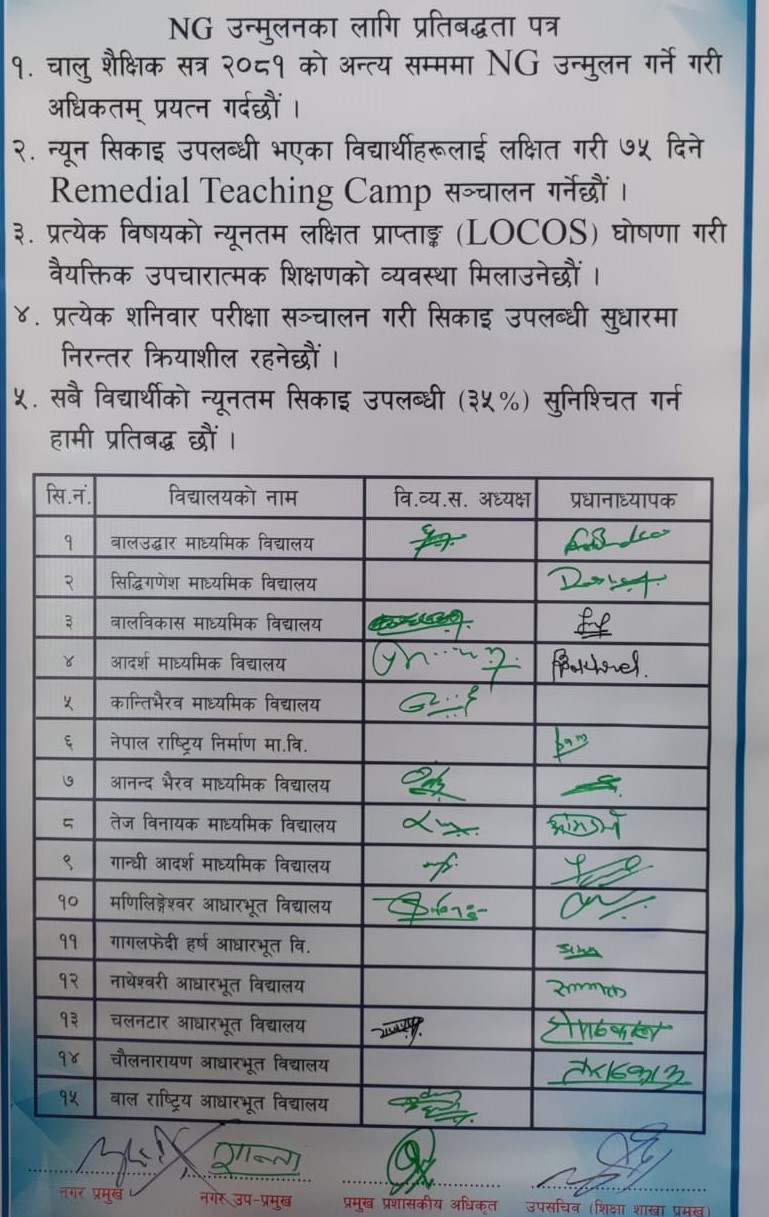 NG उन्मुलनका लागि प्रतिबद्धता पत्र
१. चालु शैक्षिक सत्र २०८१ को अन्त्य सम्ममा NG उन्मुलन गर्ने गरी
अधिकतम् प्रयत्न गर्दछौं ।
२. न्यून सिकाइ उपलब्धी भएका विद्यार्थीहरूलाई लक्षित गरी ७५ दिने
Remedial Teaching Camp सञ्चालन गर्नेछौं ।
३. प्रत्येक विषयको न्यूनतम लक्षित प्राप्ताङ्क (LOCOS) घोषणा गरी
वैयक्तिक उपचारात्मक शिक्षणको व्यवस्था मिलाउनेछौं ।
४. प्रत्येक शनिवार परीक्षा सञ्चालन गरी सिकाइ उपलब्धी सुधारमा
निरन्तर क्रियाशील रहनेछौं ।
५. सबै विद्यार्थीको न्यूनतम सिकाइ उपलब्धी (३५%) सुनिश्चित गर्न
हामी प्रतिबद्ध छौं ।
सि.नं. विद्यालयको नाम वि.व्य.स. अध्यक्ष प्रधानाध्यापक
१ बालउद्धार माध्यमिक विद्यालय
२ सिद्धिगणेश माध्यमिक विद्यालय
३ बालविकास माध्यमिक विद्यालय
४ आदर्श माध्यमिक विद्यालय
५ कान्तिभैरव माध्यमिक विद्यालय
६ नेपाल राष्ट्रिय निर्माण मा.वि.
७ आनन्द भैरव माध्यमिक विद्यालय
८ तेज विनायक माध्यमिक विद्यालय
९ गान्धी आदर्श माध्यमिक विद्यालय
१० मणिलिङ्गेश्वर आधारभूत विद्यालय
११ गागलफेदी हर्ष आधारभूत वि.
१२ नाथेश्वरी आधारभूत विद्यालय
१३ चलनटार आधारभूत विद्यालय
१४ चौलनारायण आधारभूत विद्यालय
१५ बाल राष्ट्रिय आधारभूत विद्यालय
शान्ता
नगर प्रमुख नगर उप-प्रमुख प्रमुख प्रशासकीय अधिकृत उपसचिव (शिक्षा शाखा प्रमुख)